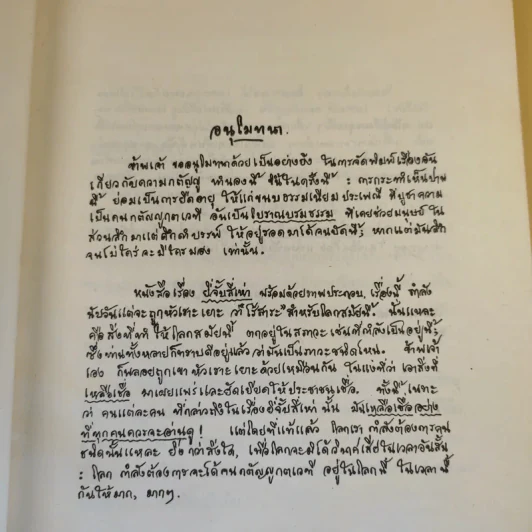 อนุโมทนา.
ข้าพเจ้า ขออนุโมทนาด้วยเป็นอย่างยิ่ง ในการจัดพิมพ์เรื่องอัน
เกี่ยวกับความกตัญญู ทำนองนี้ ขึ้นในครั้งนี้ : การกระทำเช่นว่า
นี้ ย่อมเป็นการยืดอายุ ให้แก่ขนบธรรมเนียมประเพณี ที่บูชาความ
เป็นคนกตัญญูกตเวที อันเป็นโบราณบรมธรรม ที่เคยช่วยมนุษย์ ใน
ส่วนลึก มาแต่ดึกดำบรรพ์ ให้อยู่รอดมาได้จนบัดนี้; หากแต่มันลึก
จนไม่ใคร่จะมีใครมอง เท่านั้น.
หนังสือเรื่อง ยี่จั๊บสี่เห่า พร้อมด้วยภาพประกอบ, เรื่องนี้ กำลัง
นับวันแต่จะถูกหัวเราะเยาะ ว่า "ไร้สาระ" สำหรับโลกสมัยนี้. นั่นแหละ
คือสิ่งที่ทำ ให้โลกสมัยนี้ ตกอยู่ในสภาวะ เช่นที่กำลังเป็นอยู่นี้;
ซึ่งท่านทั้งหลายก็ทราบดีอยู่แล้ว ว่ามันเป็นภาวะชนิดไหน. ข้าพเจ้า
เอง ก็พลอยถูกเขาหัวเราะเยาะด้วยเหมือนกัน ในแง่ที่ว่า เอาสิ่งที่
เหลือเชื่อ มาเผยแพร่และยัดเยียดให้ประชาชนเชื่อ. ทั้งนี้ เพราะ
ว่า คนแต่ละคน ที่กล่าวถึงในเรื่องยี่จั๊บสี่เห่า นั้น มันเหลือเชื่ออย่าง
ที่ทุกคนควรจะอ่านดู! แต่โดยที่แท้แล้ว โลกเรา กำลังต้องการคน
ชนิดนั้นแหละ ยิ่งกว่าสิ่งใด, เพื่อโลกจะมิได้วินาศเสียในเวลาอันสั้น
: โลก กำลังต้องการจะได้คนกตัญญูกตเวที อยู่ในโลกนี้ ในเวลานี้
กันให้มาก, มากๆ.